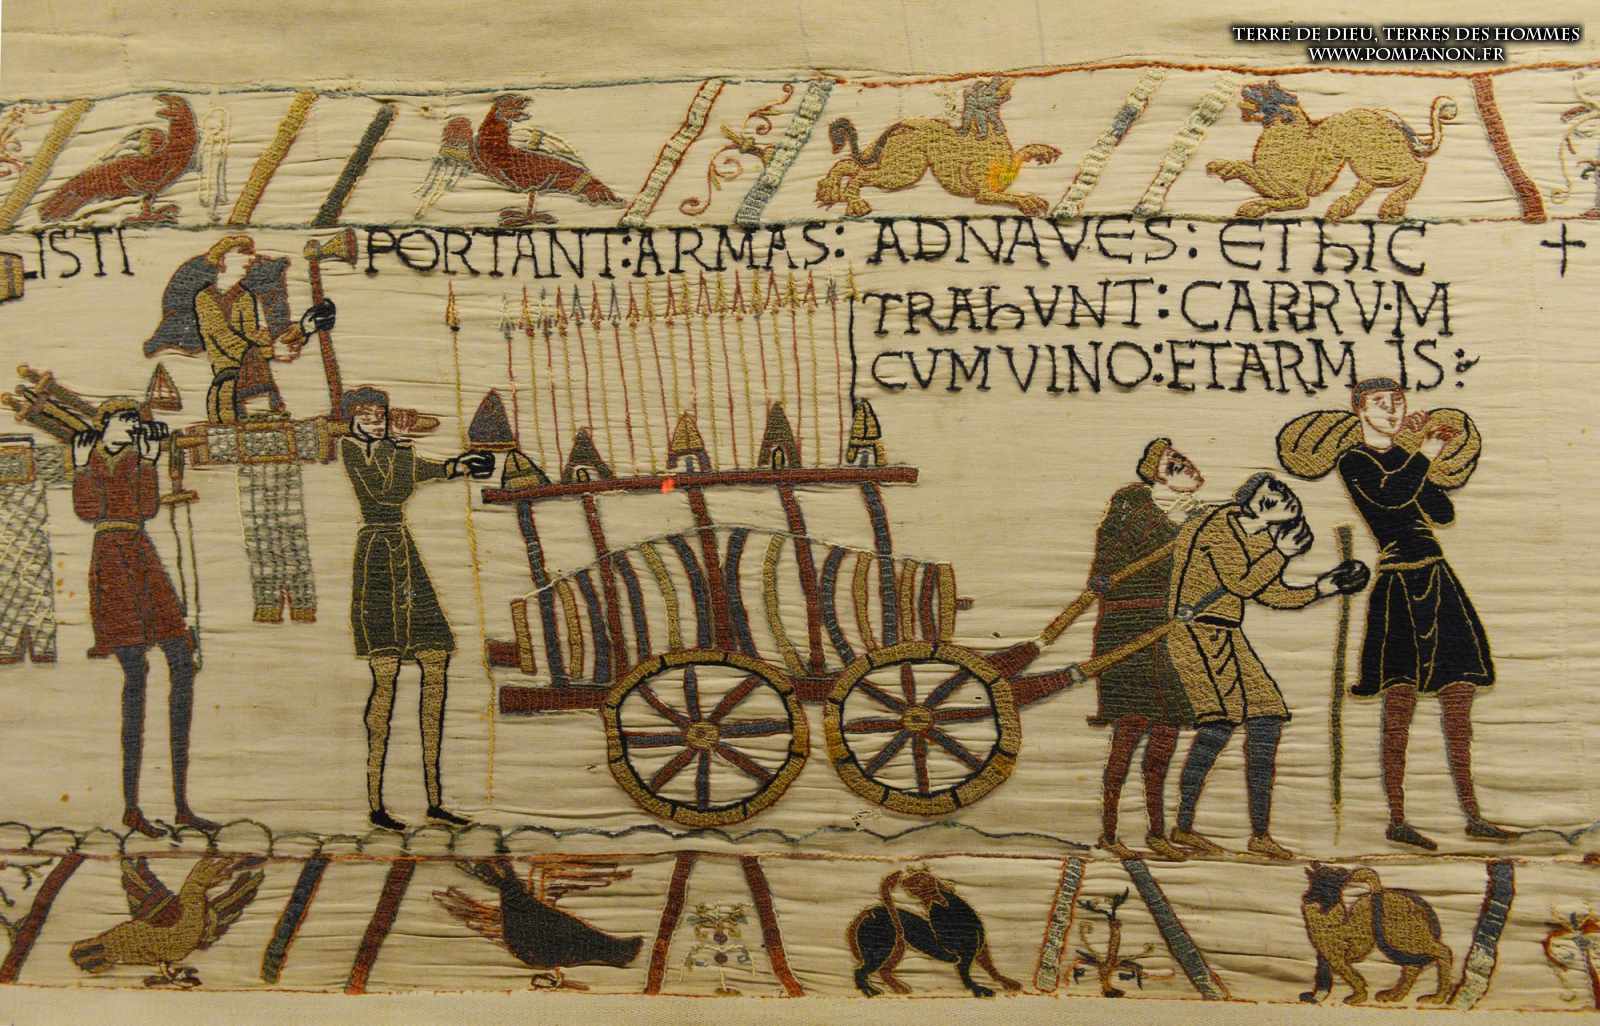 TERRE DE DIEU, TERRES DES HOMMES
WWW.POMPANON.FR
ISTI PORTANT:ARMAS: ADNAVES: EThIC +
TRAhVNT: CARRV·M
CVMVINO:ETARM IS: